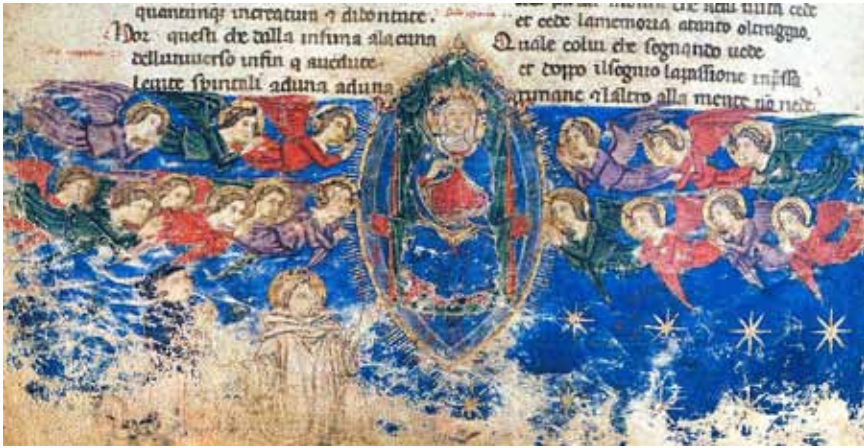 quantunqȝ increatura ⁊ dibontate.
Hor questi che dalla infima alacuna
delluniuerso infin q̄ aueduce
leuite spiritali aduna aduna
et cede lamemoria atanto oltraggio.
Quale colui che sognando uede
et doppo ilsogno lapassione inp̄ssa
rimane ⁊ laltro alla mente nō riede.